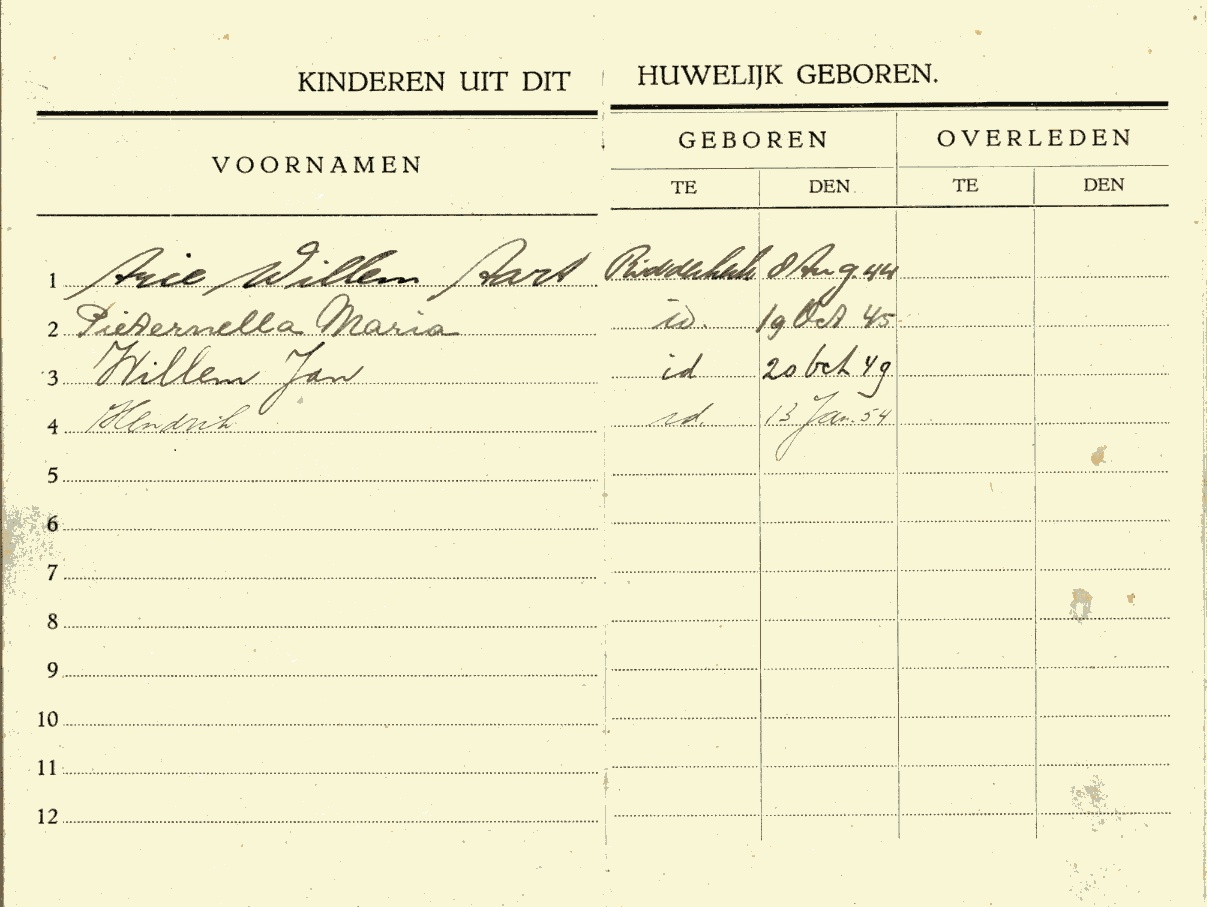 KINDEREN UIT DIT HUWELIJK GEBOREN.
VOORNAMEN GEBOREN OVERLEDEN
TE DEN TE DEN
1 Arie Willem Aart 8 Aug. 44
2 Pieternella Maria id. 19 Oct 45
3 Willem Jan id 20 Oct 49
4 Hendrik id. 13 Jan. 54
5
6
7
8
9
10
11
12